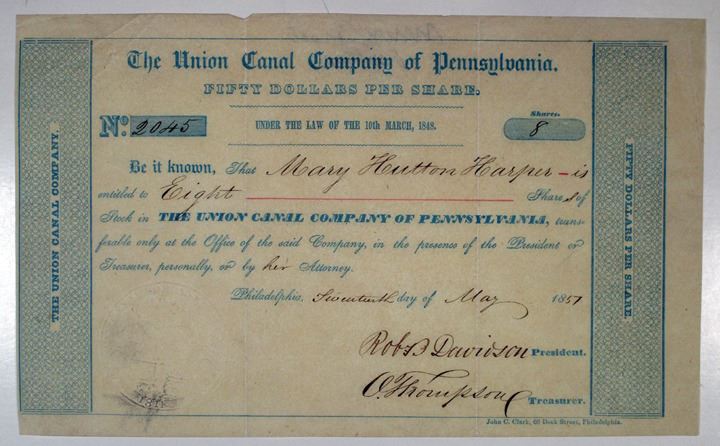 The Union Canal Company of Pennsylvania.
FIFTY DOLLARS PER SHARE.
No. 2045
UNDER THE LAW OF THE 10th MARCH, 1848.
Shares.
8
Be it known, That Mary Hutton Harper is
entitled to Eight Shares of
Stock in THE UNION CANAL COMPANY OF PENNSYLVANIA, trans-
ferable only at the Office of the said Company, in the presence of the President or
Treasurer, personally, or by her Attorney.
Philadelphia, day of May 1857
Robt B Davidson President.
O. Thompson Treasurer.
John C. Clark, 60 Dock Street, Philadelphia.
THE UNION CANAL COMPANY.
FIFTY DOLLARS PER SHARE.